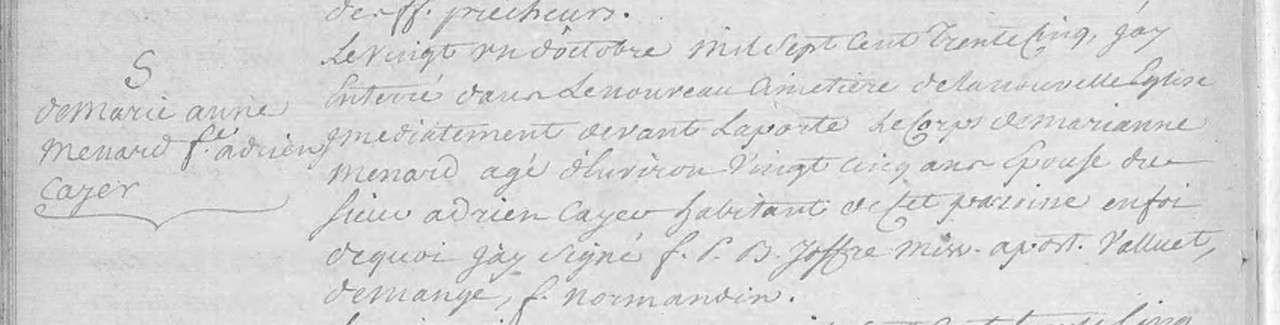 des ff. precheurs.
Le vingt un d'octobre mil sept cent trente cinq, j'ay
S
de marie anne
menard f.e adrien
cayer
Enterré dans Le nouveau Cimetière de la nouvelle Eglise
jmediatement devant La porte Le Corps de marianne
menard agé d'Environ vingt cinq ans Epouse du
sieur adrien Cayer habitant de cet paroisse en foi
de quoi j'ay signé f. P. B. Joffre miss. apost. Valluet,
demange, f. normandin.